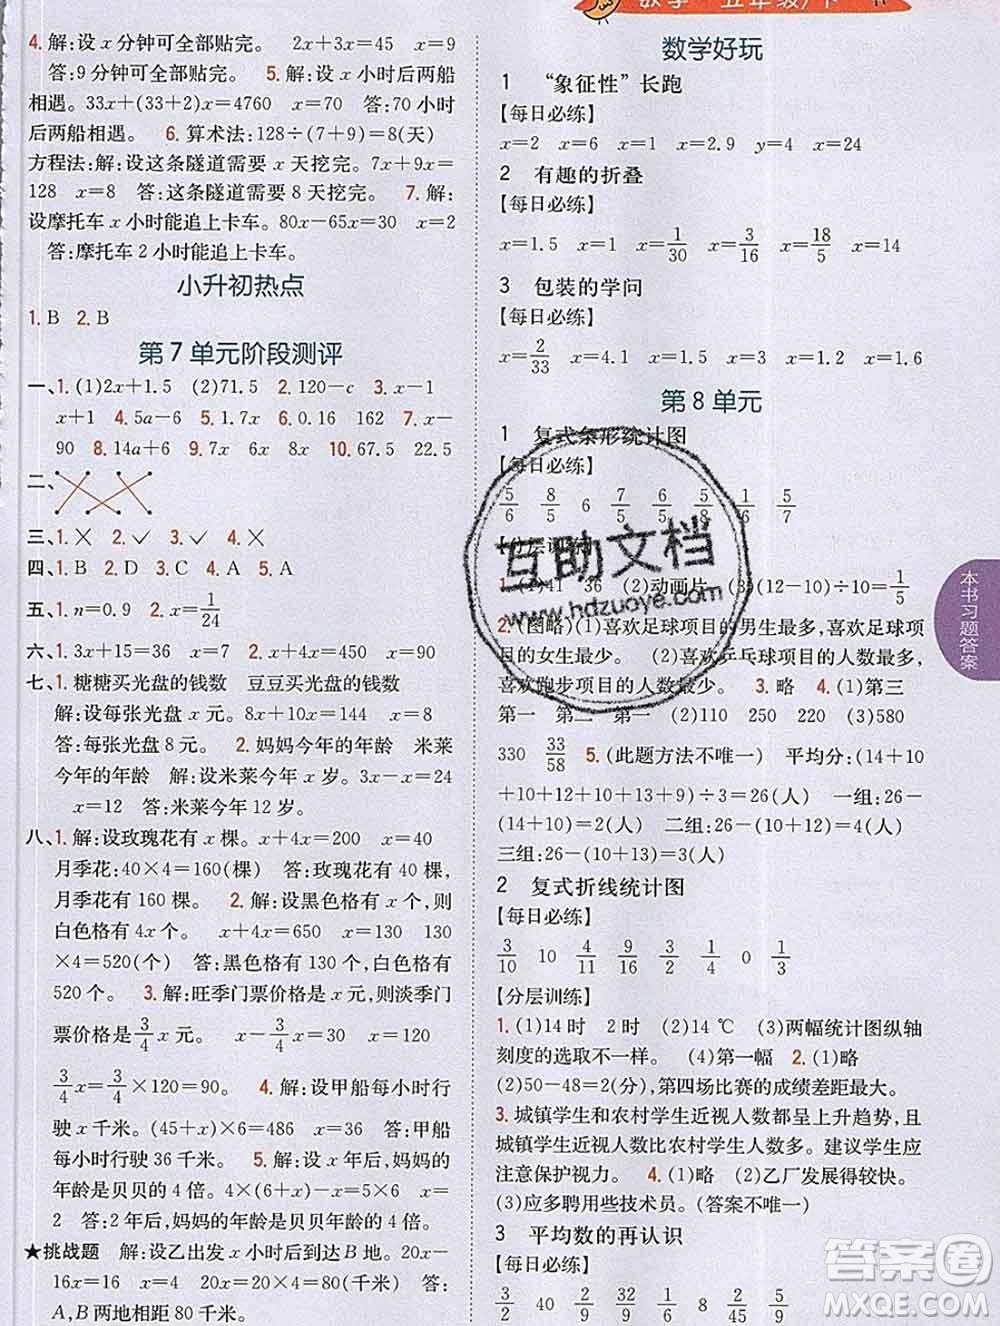 数学 五年级/下
4. 解:设 x 分钟可全部贴完。 2x+3x=45 x=9
答:9 分钟可全部贴完。 5. 解:设 x 小时后两船
相遇。33x+(33+2)x=4760 x=70 答:70 小时
后两船相遇。 6. 算术法:128÷(7+9)=8(天)
方程法:解:设这条隧道需要 x 天挖完。7x+9x=
128 x=8 答:这条隧道需要 8 天挖完。 7. 解:
设摩托车 x 小时能追上卡车。80x-65x=30 x=2
答:摩托车 2 小时能追上卡车。
小升初热点
1. B 2. B
第 7 单元阶段测评
一、1. (1)2x+1.5 (2)71.5 2. 120-c 3. x-1
x+1 4. 5a-6 5. 1.7x 6. 0.16 162 7. x-
90 8. 14a+4 9. 7x 6x 8x 10. 67.5 22.5
二、
三、1. × 2. ✓ 3. ✓ 4. ×
四、1. B 2. D 3. C 4. A
五、1. n=0.9 2. x=1/24
六、1. 3x+15=36 x=7 2. 4x-12=60 x=18
七、1. 糖糖买光盘的钱数 豆豆买光盘的钱数
解:设每张光盘 x 元。8x+10x=144 x=8
答:每张光盘 8 元。 2. 妈妈今年的年龄 米莱
今年的年龄 解:设米莱今年 x 岁。3x-x=24
x=12 答:米莱今年 12 岁。
八、1. 解:设玫瑰花有 x 棵。x+4x=200 x=40
月季花:40×4=160(棵) 答:玫瑰花有 40 棵,
月季花有 160 棵。 2. 解:设黑色格有 x 个,白
色格有 4x 个。 x+4x=650 x=130 130
×4=520(个) 答:黑色格有 130 个,白色格有
520 个。 3. 解:旺季门票价格是 x 元,则淡季门
票价格是 3/4 x 元。 x-3/4x=30 x=120
3/4x=3/4×120=90。 4. 解:设甲船每小时行
驶 x 千米。(45+x)×6=486 x=36 答:甲船
每小时行驶 36 千米。 5. 解:设 x 年后,妈妈的
年龄是贝贝的 4 倍。4×(6+x)=30+x x=
2 答:2 年后,妈妈的年龄是贝贝年龄的 4 倍。
★挑战题 解:设乙出发 x 小时后到达 B 地。20x-
16x=16 x=4 20x=20×4=80(千米) 答:
A,B 两地相距 80 千米。
数学好玩
1 “象征性”长跑
【每日必练】
x=2 x=6 x=10 x=2 y=4 x=24
2 有趣的折叠
【每日必练】
x=1.5 x=1 x=1/30 x=3/16 x=18/5 x=1.5
3 包装的学问
【每日必练】
x=2/33 x=1.6
第 8 单元
1 复式条形统计图
【每日必练】
5/6 8/5 6 7/5 1/6 5/7
【分层训练】
1. (1)41 36 (2)动画片 (3)(12-10)÷10=1/5
2. (图略)(1)喜欢足球项目的男生最多,喜欢足球项
目的女生最少。 (2)喜欢乒乓球项目的人数最多,
喜欢跑步项目的人数最少。 3. 略 4. (1)第三
第一 第二 第一 (2)110 250 220 (3)580
330 33/58 5. (此题方法不唯一) 平均分:(14+10
+10+12+10+9+13)÷3=26(人) 一组:26-
(14+10)=2(人) 二组:26-(12+10)=4(人)
三组:26-(10+13)=3(人)
2 复式折线统计图
【每日必练】
3/10 10 4/11 9/16 2/9 3/4 1/4 0 1/3
【分层训练】
1. (1)14 时 2 时 (2)14 ℃ (3)两幅统计图纵轴
刻度的选取不一样。 (4)第一幅 2. (1)略
(2)50-48=2(分),第四场比赛的成绩差距最大。
3. 城镇学生和农村学生近视人数都呈上升趋势,且
城镇学生近视人数比农村学生人数多。建议学生应
注意保护视力。 4. (1)略 (2)乙厂发展得较快。
(3)应多聘用些技术员。(答案不唯一)
3 平均数的再认识
【每日必练】
3/2 40 8
本书习题答案
互助文档
www.hdzuoye.com
答案圈
MXQE.COM